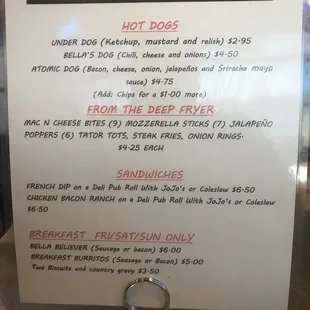 HOT DOGS
UNDER DOG (Ketchup, mustard and relish) $2.95
BELLA'S DOG (Chili, cheese and onions) $4.50
ATOMIC DOG (Bacon, cheese, onion, jalapeños and Sriracha mayo
sauce) $4.75
(Add: Chips for a $1.00 more)
FROM THE DEEP FRYER
MAC N CHEESE BITES (9) MOZZERELLA STICKS (7) JALAPEÑO
POPPERS (6) TATOR TOTS, STEAK FRIES, ONION RINGS.
$4.25 EACH
SANDWICHES
FRENCH DIP on a Deli Pub Roll With JoJo's or Coleslaw $6.50
CHICKEN BACON RANCH on a Deli Pub Roll With JoJo's or Coleslaw
$6.50
BREAKFAST FRI/SAT/SUN ONLY
BELLA BELIEVER (Sausage or bacon) $6.00
BREAKFAST BURRITOS (Sausage or Bacon) $5.00
Two Biscuits and country gravy $3.50